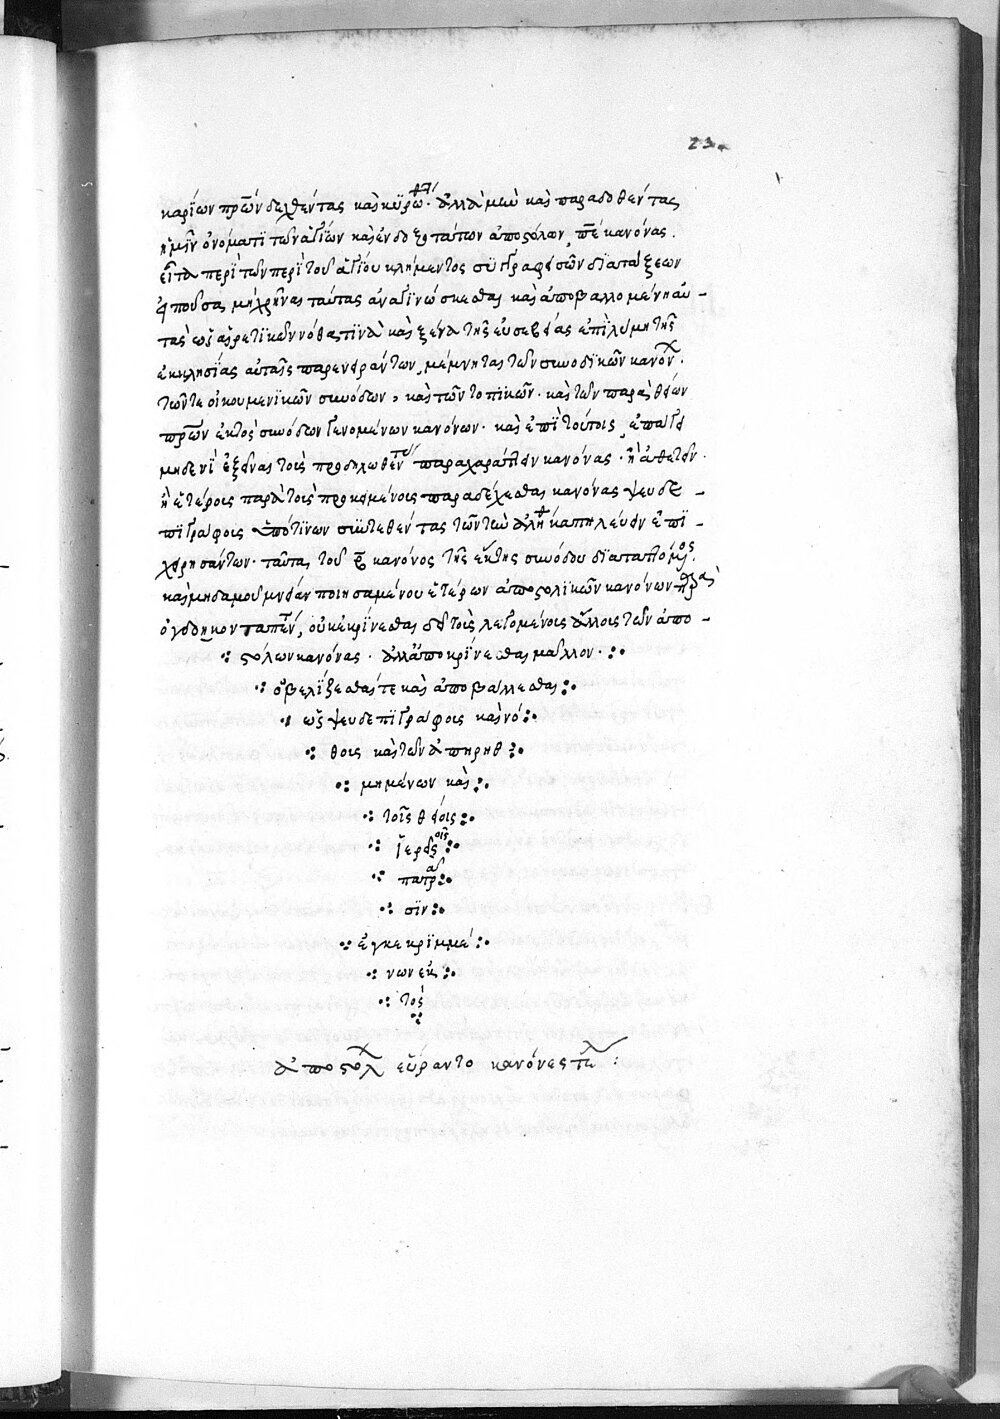 23
καρίων πρων δεχθέντας καὶ κυρω. ἀλλὰ μὴν καὶ παραδοθέντας
ἡμῖν ὀνόματι τῶν ἁγίων καὶ ἐνδόξων ἀποστόλων πε κανόνας.
εἶτα περὶ τῶν περὶ τοῦ ἁγίου κλήμεντος συγγραφεισῶν διατάξεων
εἰποῦσα, μὴ χρῆναι ταύτας ἀναγινώσκεσθαι καὶ ἀποβαλλομένη αὐ-
τὰς ὡς αἱρετικῶν νόθα τινὰ καὶ ξένα τῆς εὐσεβείας ἐπὶ λύμη τῆς
ἐκκλησίας αὐταῖς παρενειράντων, μέμνηται τῶν συνοδικῶν κανον.
τῶν τε οἰκουμενικῶν συνόδων, καὶ τῶν τοπικῶν. καὶ τῶν παρὰ θείων
πρων ἐκτὸς συνόδων γενομένων κανόνων. καὶ ἐπὶ τούτοις, ἐπάγει
μηδενὶ ἐξεῖναι τοὺς προδηλωθέντας παραχαράττειν κανόνας. ἢ ἀθετεῖν.
ἢ ἑτέρους παρὰ τοὺς προκειμένους παραδέχεσθαι κανόνας ψευδε-
πιγράφους ὑπό τινων συντεθέντας τῶν τὴν ἀλη καπηλεύειν ἐπι-
χειρησάντων. ταῦτα, τοῦ β κανόνος τῆς ἕκτης συνόδου διαταττομένου.
καὶ μηδαμοῦ μνείαν ποιησαμένου ἑτέρων ἀποστολικῶν κανόνων παρὰ
ὀγδοήκοντα πέντε, οὐκ ἐγκρίνεσθαι δεῖ τοὺς λεγομένους ἄλλους τῶν ἀπο-
στόλων κανόνας. ἀλλ' ἀποκρίνεσθαι μᾶλλον.
ὀβελίζεσθαί τε καὶ ἀποβάλλεσθαι
ὡς ψευδεπιγράφους καὶ νό
θους καὶ τῶν ἀπηριθ
μημένων καὶ
τοῖς θείοις
ἱεροῖς
πατρά
σιν
ἐγκεκριμμέ
νων ἐκ
τὸς
ἀποστολ εὕραντο κανόνες τελ: